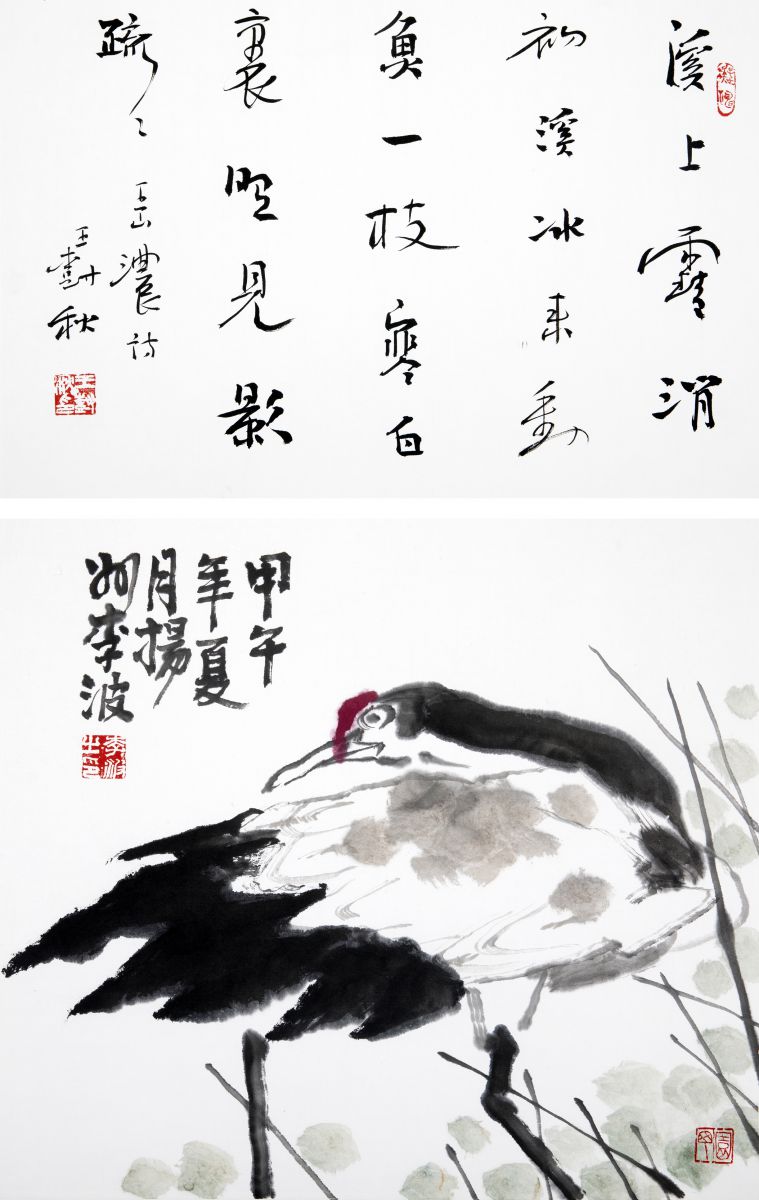 溪上雪消
初溪冰未動
魚一枝寒白
裏見影
疏疏 山農詩
王秋
甲午
年夏
月揚
州李波
李波之印